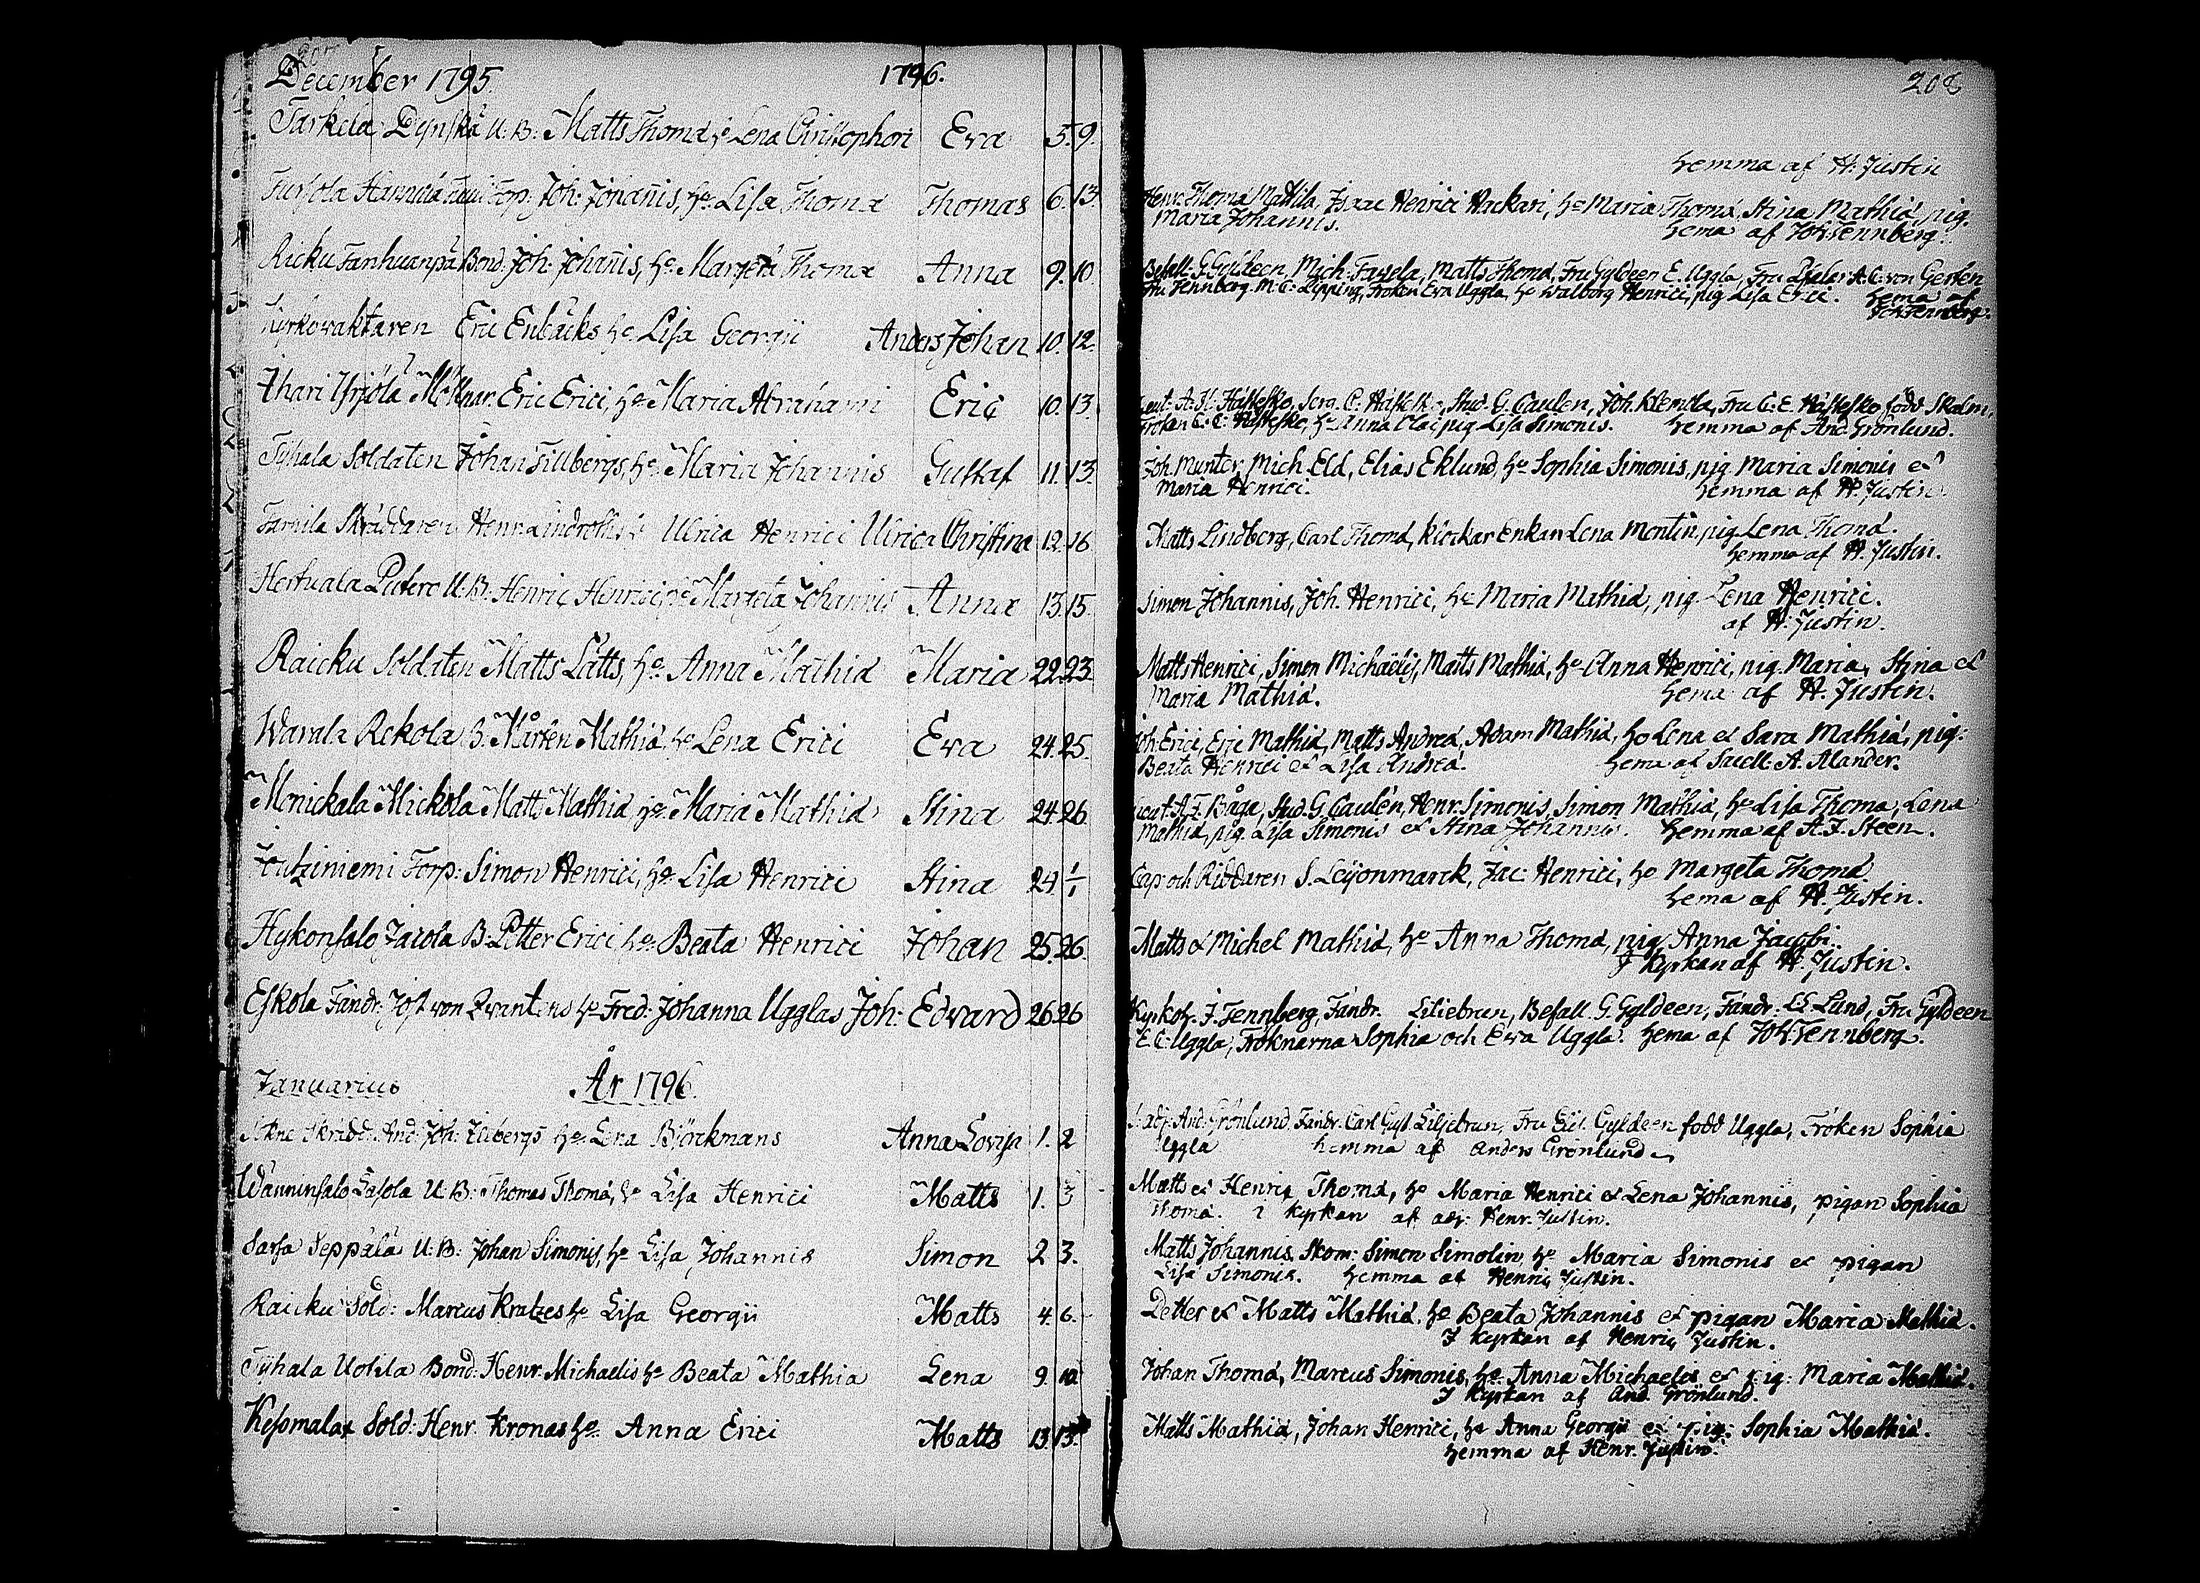 207
December 1795. 1796.
Tarkela U: B: Matts Thomæ, he Lena Christophori Eva 5. 9.
Turjola Hannula Torp: Joh: Johañis, he Lisa Thomæ Thomas 6. 13.
Ricku Tanhuanpä Bond. Joh: Johañis, he Margeta Thomæ Anna 9. 10.
Kyrkovaktaren Eric Enbäcks he Lisa Georgii Anders Johan 10. 12.
Ihari Yrjölä Möllnar Eric Erici, he Maria Abrahami Eric 10. 13.
Tyhala Soldaten Johan Tillbergs, he Maria Johannis Gustaf 11. 13.
Skräddaren Henr. he Ulrica Henrici Ulrica Christina 12. 16
Hertuala U: B: Henric Henrici, he Margeta Johannis Anna 13. 15.
Raicku Soldaten Matts Lätts, he Anna Mathiæ Maria 22. 23.
Warala Rekola B. Mårten Mathiæ, he Lena Erici Eva 24. 25.
Monickala Mickola Matts Mathiæ, he Maria Mathiæ Stina 24. 26
Joutziniemi Torp: Simon Henrici, he Lisa Henrici Stina 24 1/1
Hykonsalo Jacola B. Petter Erici he Beata Henrici Johan 25. 26.
Eskola Fändr: Jost von Qvantens he Fred: Johanna Ugglas Joh: Edvard 26. 26
Januarius År 1796.
Skrädd: And: Joh: he Lena Björkmans Anna Lovisa 1. 2
Wänninsalo Lasola U: B: Thomas Thomæ, he Lisa Henrici Matts 1. 3
Sarsa Seppälä U: B: Johan Simonis, he Lisa Johannis Simon 2 3.
Raicku Sold: Marcus Kratzes he Lisa Georgii Matts 4. 6.
Tyhala Uotila Bond: Henr. Michaelis he Beata Mathiæ Lena 9. 10
Sold: Henr. Kronas he Anna Erici Matts 13. 13.
208
hemma af H. Justin
Henr. Thomæ Mattila, Isaac Henrici Hackari, he Maria Thomæ, Stina Mathiæ, pig.
Maria Johannis. hema af Joh: Tennberg.
Befall. G. Gyldeen, Mich. Matts Thomæ, Fru Gyldeen E. Uggla, Fru A. C. von Gerten
Fru Tennberg M. C. Lipping, Fröken Eva Uggla, he Walborg Henrici, pig Lisa Erici. hema af
Joh: Tennberg.
Lieut. A. H. Hästesko, Serg. C. Hästesko, Stud. G. Caulen, Joh. Klemola, Fru C. E. Hästesko född Skalm,
Fröken C. C. Hästesko, he Anna Clai, pig Lisa Simonis. hemma af And. Grönlund.
Joh. Munter, Mich. Eld, Elias Eklund, he Sophia Simonis, pig. Maria Simonis et
Maria Henrici. hemma af H. Justin.
Matts Lindberg, Carl Thomæ, Klockar Enkan Lena Montin, pig. Lena Thomæ.
hemma af H. Justin.
Simon Johannis, Joh. Henrici, he Maria Mathiæ, pig. Lena Henrici.
af H. Justin.
Matts Henrici, Simon Michaelis, Matts Mathiæ, he Anna Henrici, pig. Maria, Stina et
Maria Mathiæ. hema af H. Justin.
Joh. Erici, Eric Mathiæ, Matts Andreæ, Adam Mathiæ, ho Lena et Sara Mathiæ, pig:
Beata Henrici et Lisa Andreæ. hema af Sacell. A. Alander.
Lieut. A. F. Båga, Stud. G. Caulén, Henr. Simonis, Simon Mathiæ, he Lisa Thomæ, Lena
Mathiæ, pig. Lisa Simonis et Stina Johannis. hemma af A. F. Steen.
Cap: och Riddaren S. Leijonmarck, Jac: Henrici, he Margeta Thomæ.
hema af H. Justin.
Matts et Michel Mathiæ, he Anna Thomæ, pig. Anna Jacobi.
I kyrkan af H. Justin.
Kyrkoh. J. Tennberg, Fändr. Liliebrun, Befall. G. Gyldeen, Fändr: Lund, Fru Gyldeen
E. C. Uggla, Fröknarna Sophia och Eva Uggla. hema af Joh: Tennberg.
And. Grönlund, Fändr. Carl Gust. Liljebrun, Fru Elis. Gyldeen född Uggla, Fröken Sophia
Uggla hemma af Anders Grönlund
Matts et Henric Thomæ, he Maria Henrici et Lena Johannis, pigan Sophia
Thomæ. i kyrkan af adj: Henr. Justin.
Matts Johannis, Skom: Simon Simolin, he Maria Simonis et pigan
Lisa Simonis. hemma af Henric Justin.
Petter et Matts Mathiæ, he Beata Johannis et pigan Maria Mathiæ.
I kyrkan af Henric Justin.
Johan Thomæ, Marcus Simonis, he Anna Michaelis et pig: Maria Mathiæ.
I kyrkan af And. Grönlund.
Matts Mathiæ, Johan Henrici, he Anna Georgii et pig: Sophia Mathiæ.
hemma af Henr. Justin.